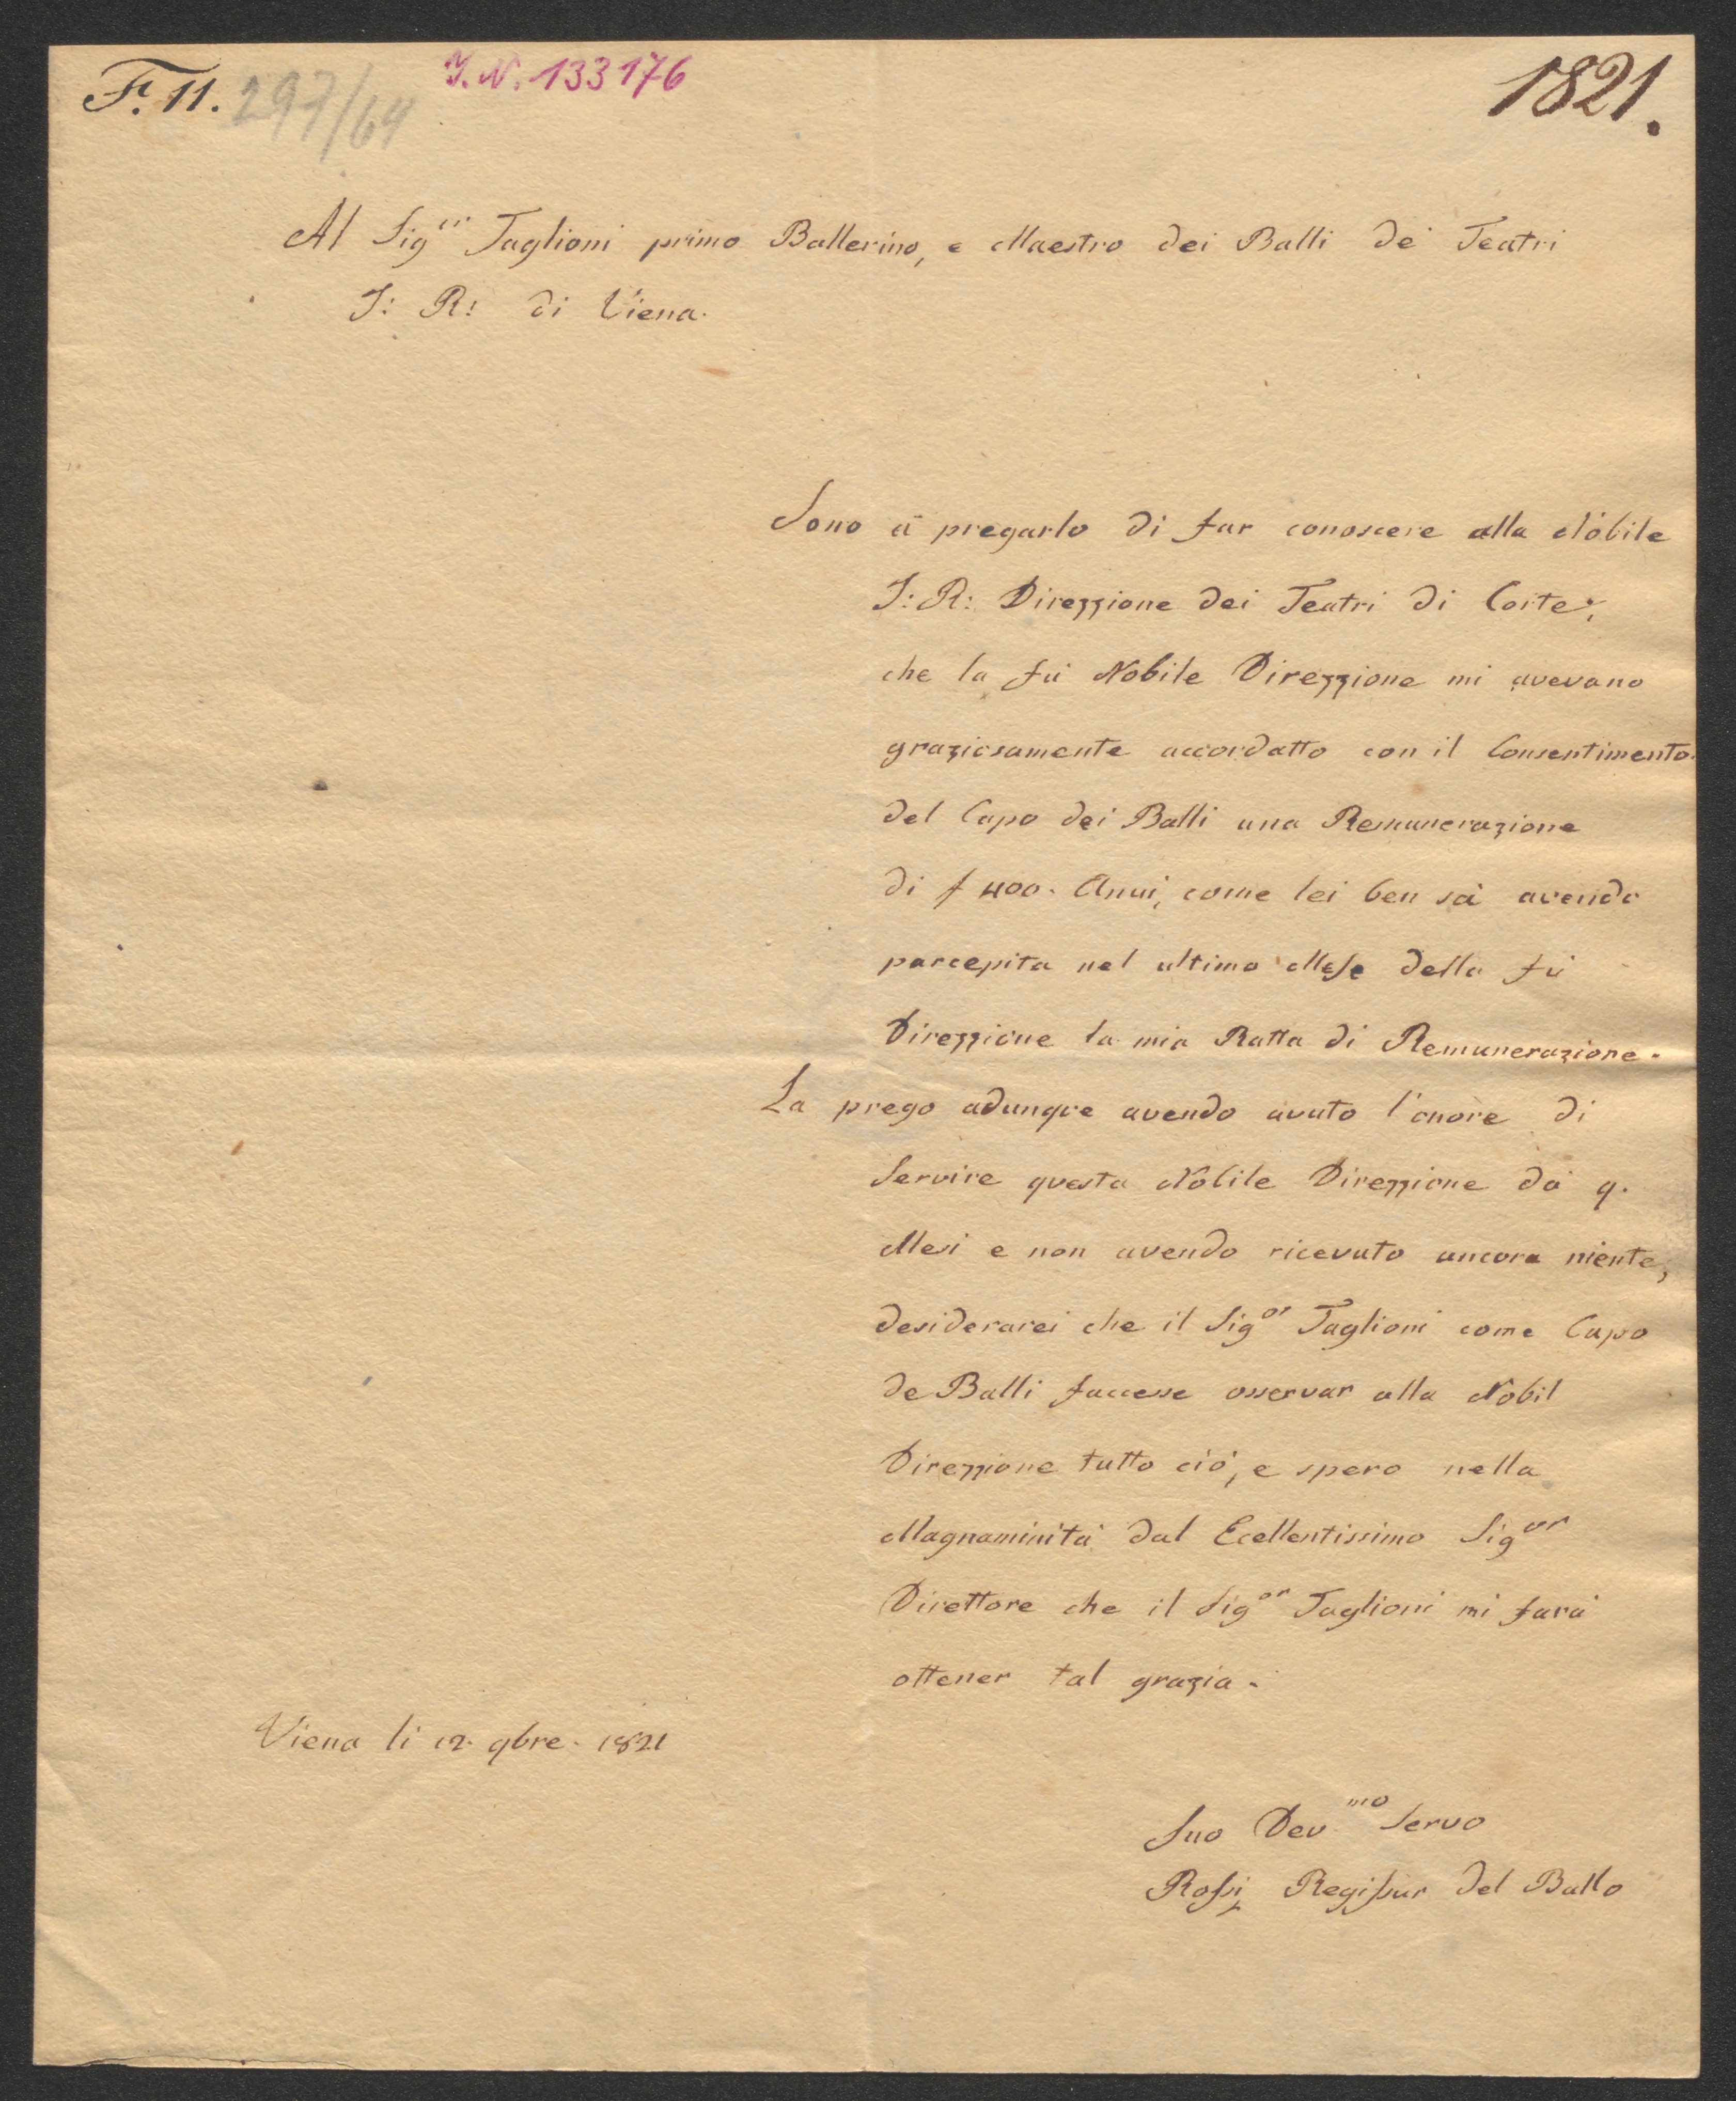 F. 11. 297/64 I.N. 133176 1821.
Al Sigor Taglioni primo Ballerino, e Maestro dei Balli de' Teatri
I: R: di Viena.
Sono à pregarlo di far conoscere alla Nobile
I: R: Direzzione dei Teatri di Corte,
che la fú Nobile Direzzione mi avevano
graziosamente accordatto con il Consentimento
del Capo dei Balli una Remunerazione
di f 400. Anui, come lei ben sà avendo
parcepita nel ultimo Mese della fú
Direzzione la mia Ratta di Remunerazione.
La prego adunqve avendo avuto l'onore di
Servire qvesta Nobile Direzzione da 9.
Mesi e non avendo ricevuto ancora niente,
desiderarei che il Sigor Taglioni come Capo
de Balli faccesse osservar alla Nobil
Direzzione tutto ciò, e spero nella
Magnaminità dal Ecellentissimo Sigor
Direttore che il Sigor Taglioni mi farà
ottener tal grazia.
Viena li 12. 9bre. 1821
Suo Devmo Servo
Rossi Regissur del Ballo